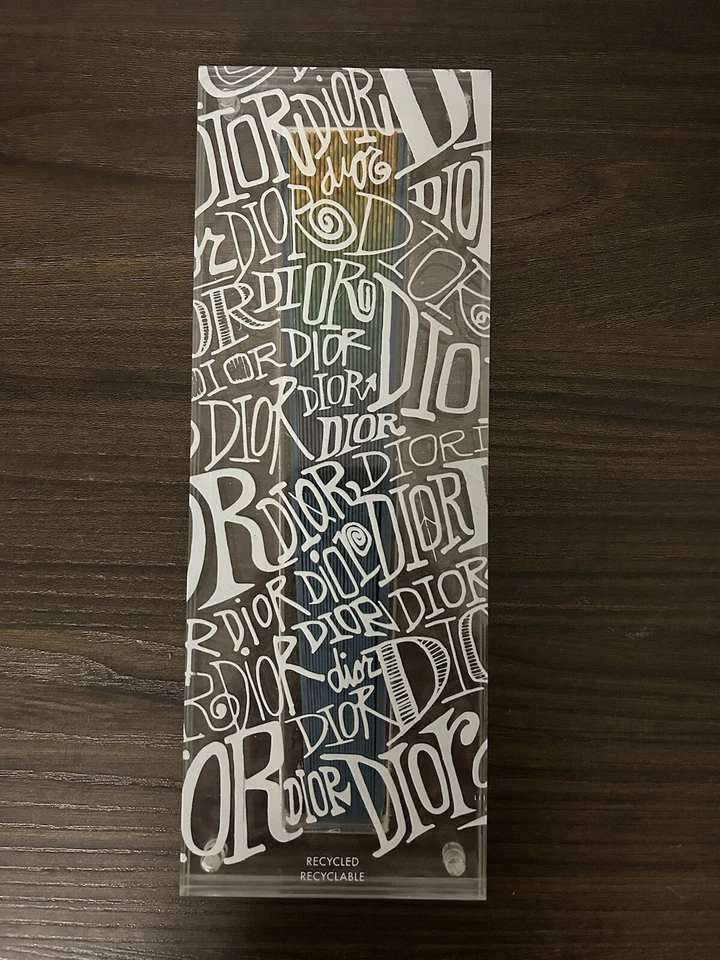 DIOR DIOR DI
DIOR DIO
DIOR D DIOR
DIOR DIOR
DIOR DIOR DIO
DIOR DIOR
DIOR DIOR DIORI
OR DIOR DIOR
DIOR
R DIOR DIOR DIOR
DIOR dior DIO
DIOR
OR DIOR DIOr
RECYCLED
RECYCLABLE